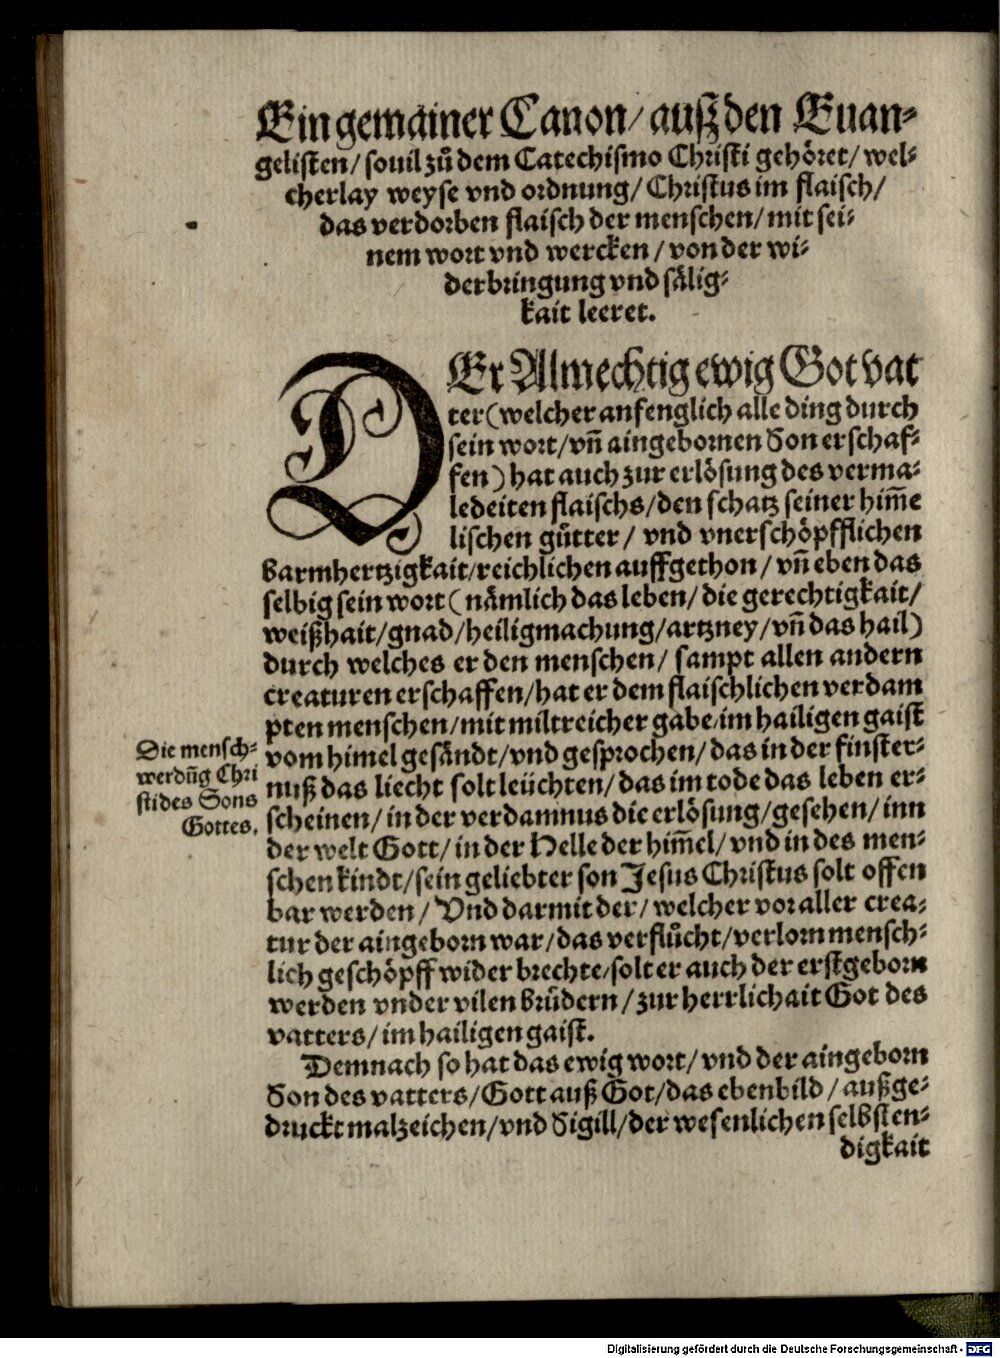 Ein gemainer Canon/ auß den Euan⸗
gelisten/ souil zů dem Catechismo Christi gehöret/ wel⸗
cherlay weyse vnd ordnung/ Christus im flaisch/
das verdorben flaisch der menschen/ mit sei⸗
nem wort vnd wercken/ von der wi⸗
derbringung vnd sälig⸗
kait leeret.
DEr Almechtig ewig Got vat
ter (welcher anfenglich alle ding durch
sein wort/ vñ aingebornen Son erschaf⸗
fen) hat auch zur erlösung des verma⸗
ledeiten flaischs/ den schatz seiner him̃e
lischen gůtter/ vnd vnerschöpfflichen
Barmhertzigkait/ reichlichen auffgethon/ vñ eben das
selbig sein wort (nämlich das leben/ die gerechtigkait/
weißhait/ gnad/ heiligmachung/ artzney/ vñ das hail)
durch welches er den menschen/ sampt allen andern
creaturen erschaffen/ hat er dem flaischlichen verdam
pten menschen/ mit miltreicher gabe/ im hailigen gaist
vom himel gesändt/ vnd gesprochen/ das in der finster⸗
nuß das liecht solt leüchten/ das im tode das leben er⸗
scheinen/ in der verdamnus die erlösung/ gesehen/ inn
der welt Gott/ in der Helle der him̃el/ vnd in des men⸗
schen kindt/ sein geliebter son Jesus Christus solt offen
bar werden/ Vnd darmit der/ welcher vor aller crea⸗
tur der aingeborn war/ das verflůcht/ verlorn mensch⸗
lich geschöpff wider brechte/ solt er auch der erstgeborn
werden vnder vilen Brůdern/ zur herrlichait Got des
vatters/ im hailigen gaist.
Demnach so hat das ewig wort/ vnd der aingeborn
Son des vatters/ Gott auß Got/ das ebenbild/ außge⸗
druckt malzeichen/ vnd Sigill/ der wesenlichen selbsten⸗
digkait
Die mensch⸗
werdũg Chri
sti des Sons
Gottes.
Digitalisierung gefördert durch die Deutsche Forschungsgemeinschaft - DFG